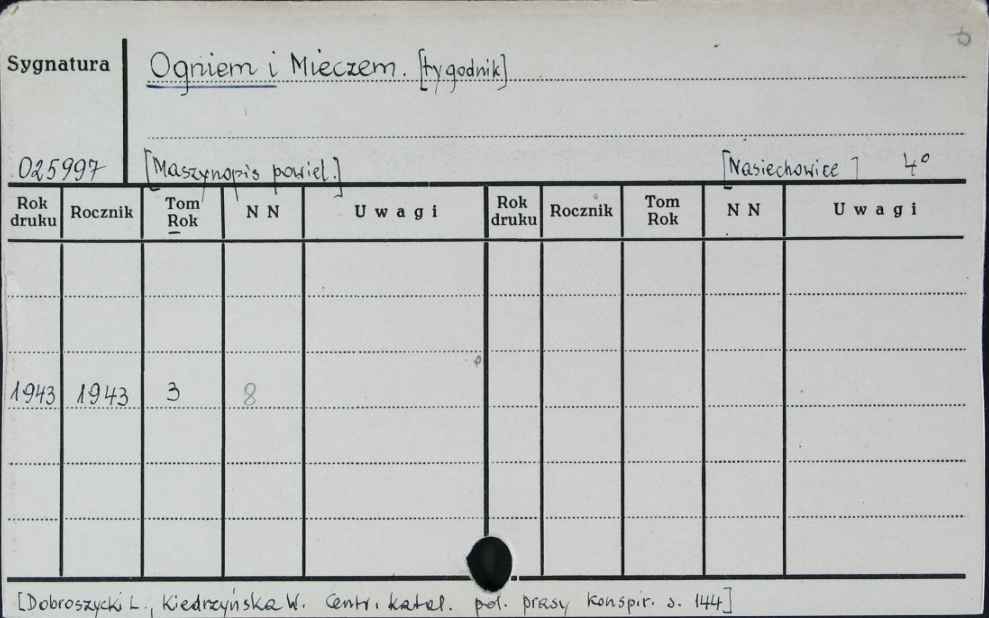 Sygnatura
Ogniem i Mieczem. [tygodnik]
025997 [Maszynopis powiel.] [Nasiechowice] 4°
Rok druku Rocznik Tom Rok N N Uwagi Rok druku Rocznik Tom Rok N N Uwagi
1943 1943 3 8
[Dobroszycki L., Kiedrzyńska W. Centr. katal. pol. prasy konspir. s. 144]